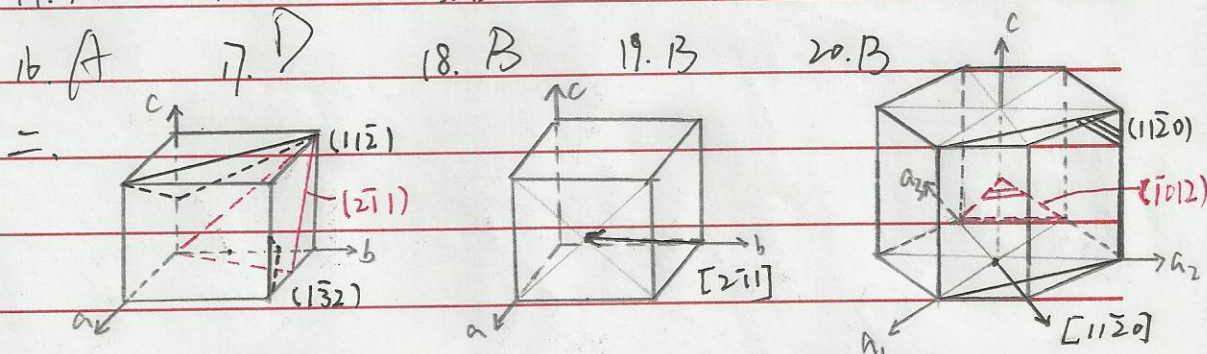 16. A 17. D 18. B 19. B 20. B
二.
c (11$\bar{2}$) (2$\bar{1}$1) b (1$\bar{3}$2) a
c b [2$\bar{1}$1] a
c (11$\bar{2}$0) ($\bar{1}$012) a₃ a₂ a₁ [11$\bar{2}$0]